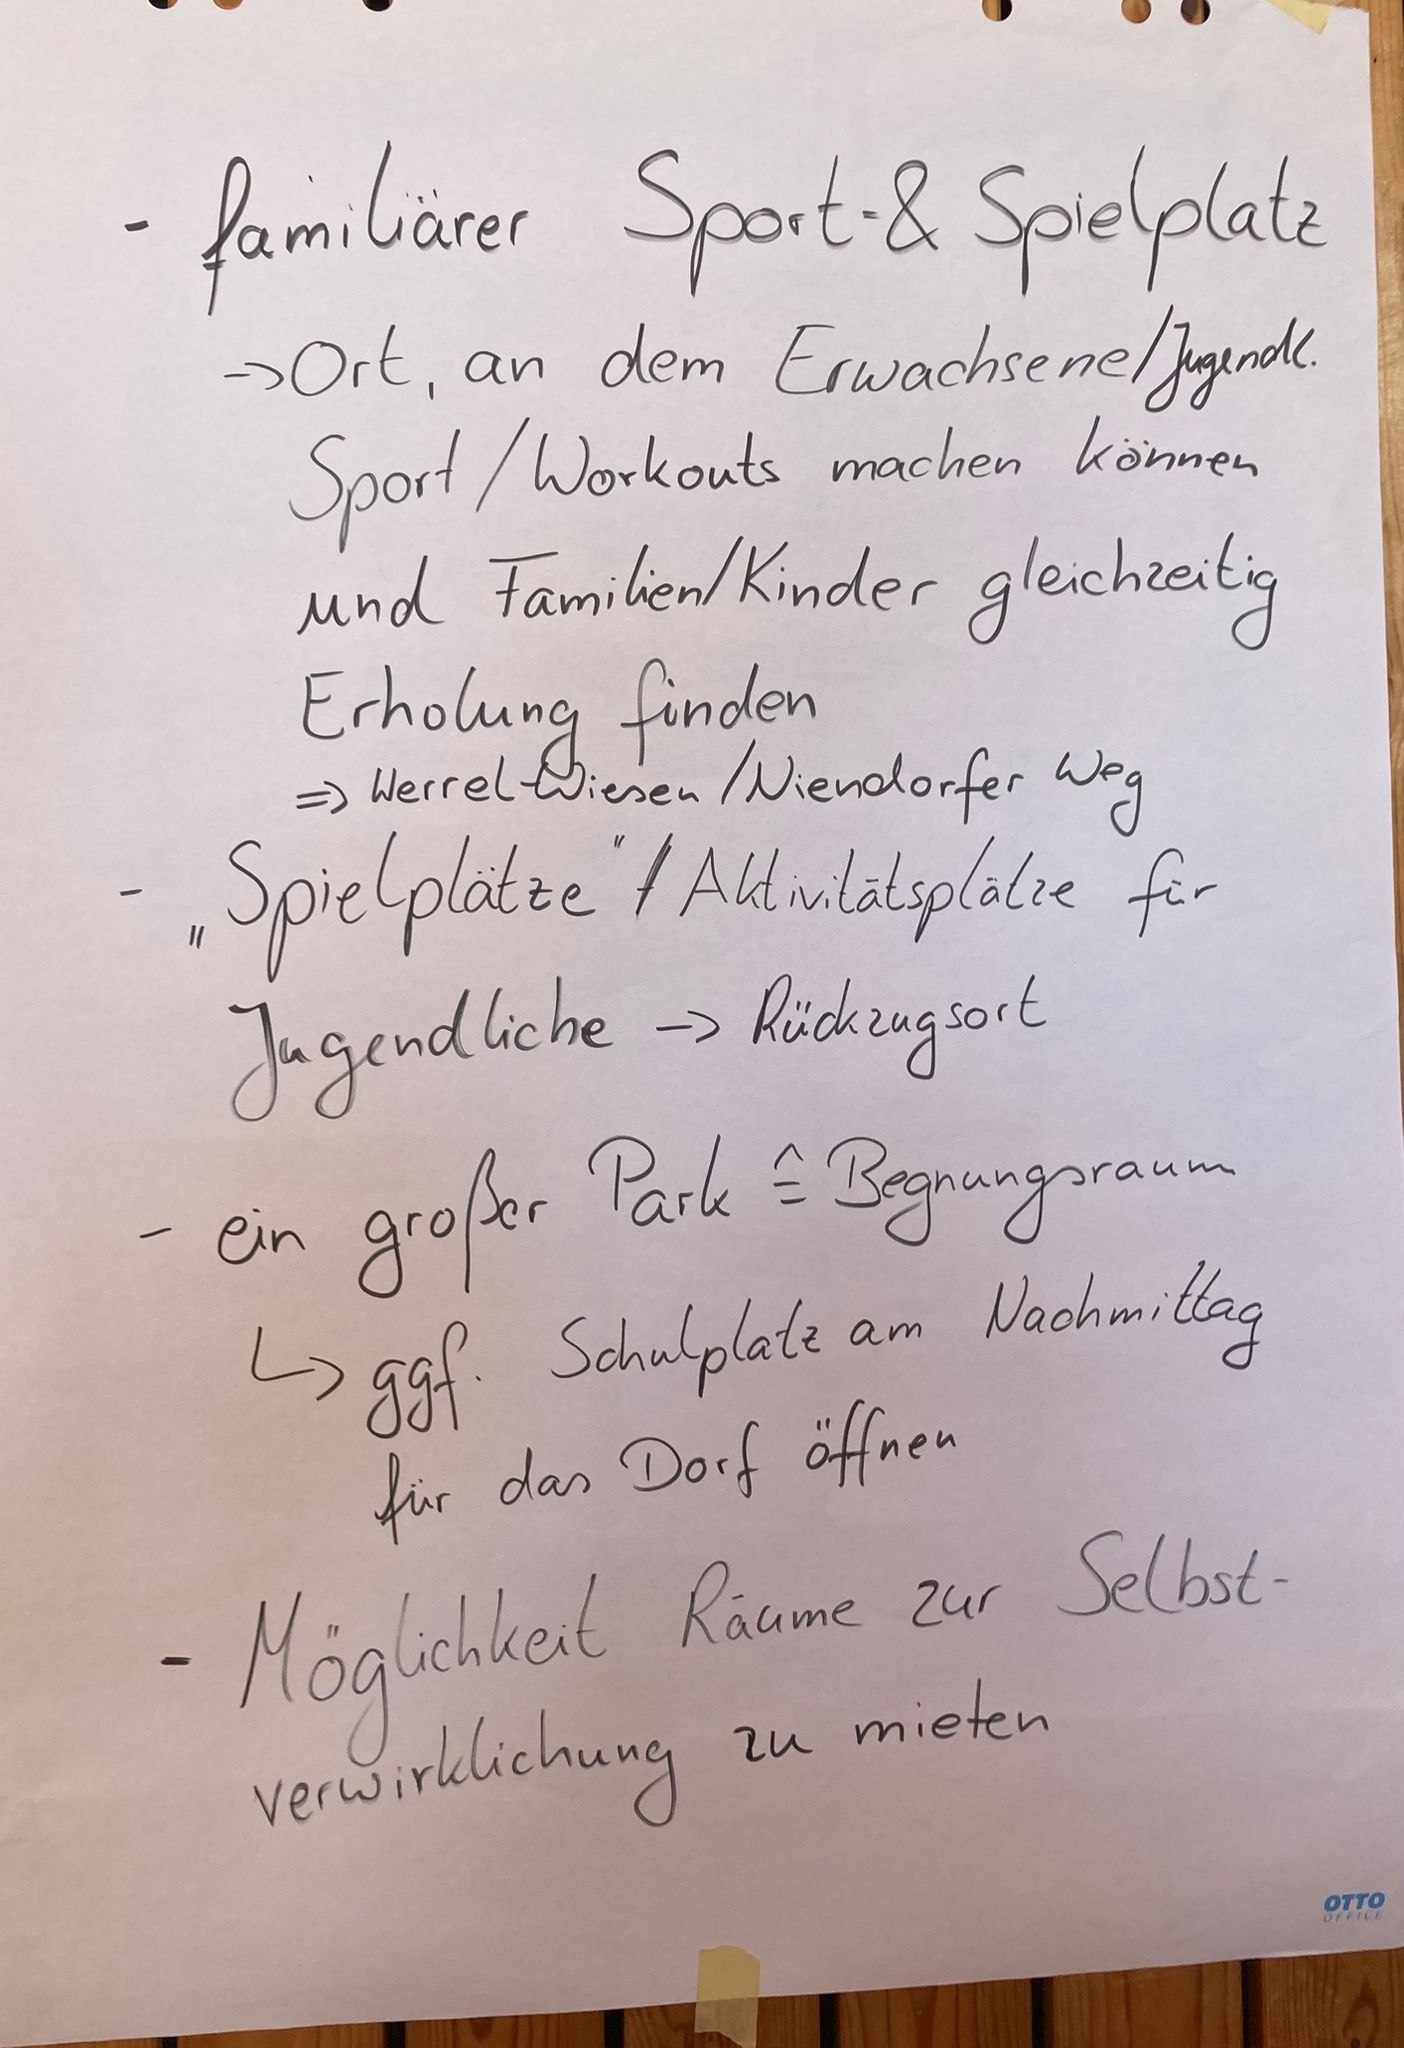 - familiärer Sport-& Spielplatz
→ Ort, an dem Erwachsene/Jugendl.
Sport/Workouts machen können
und Familien/Kinder gleichzeitig
Erholung finden
⇒ Werrel-Wiesen/Niendorfer Weg
- „Spielplätze"/Aktivitätsplätze für
Jugendliche → Rückzugsort
- ein großer Park ≙ Begnungsraum
↳ ggf. Schulplatz am Nachmittag
für das Dorf öffnen
- Möglichkeit Räume zur Selbst-
verwirklichung zu mieten
OTTO
OFFICE